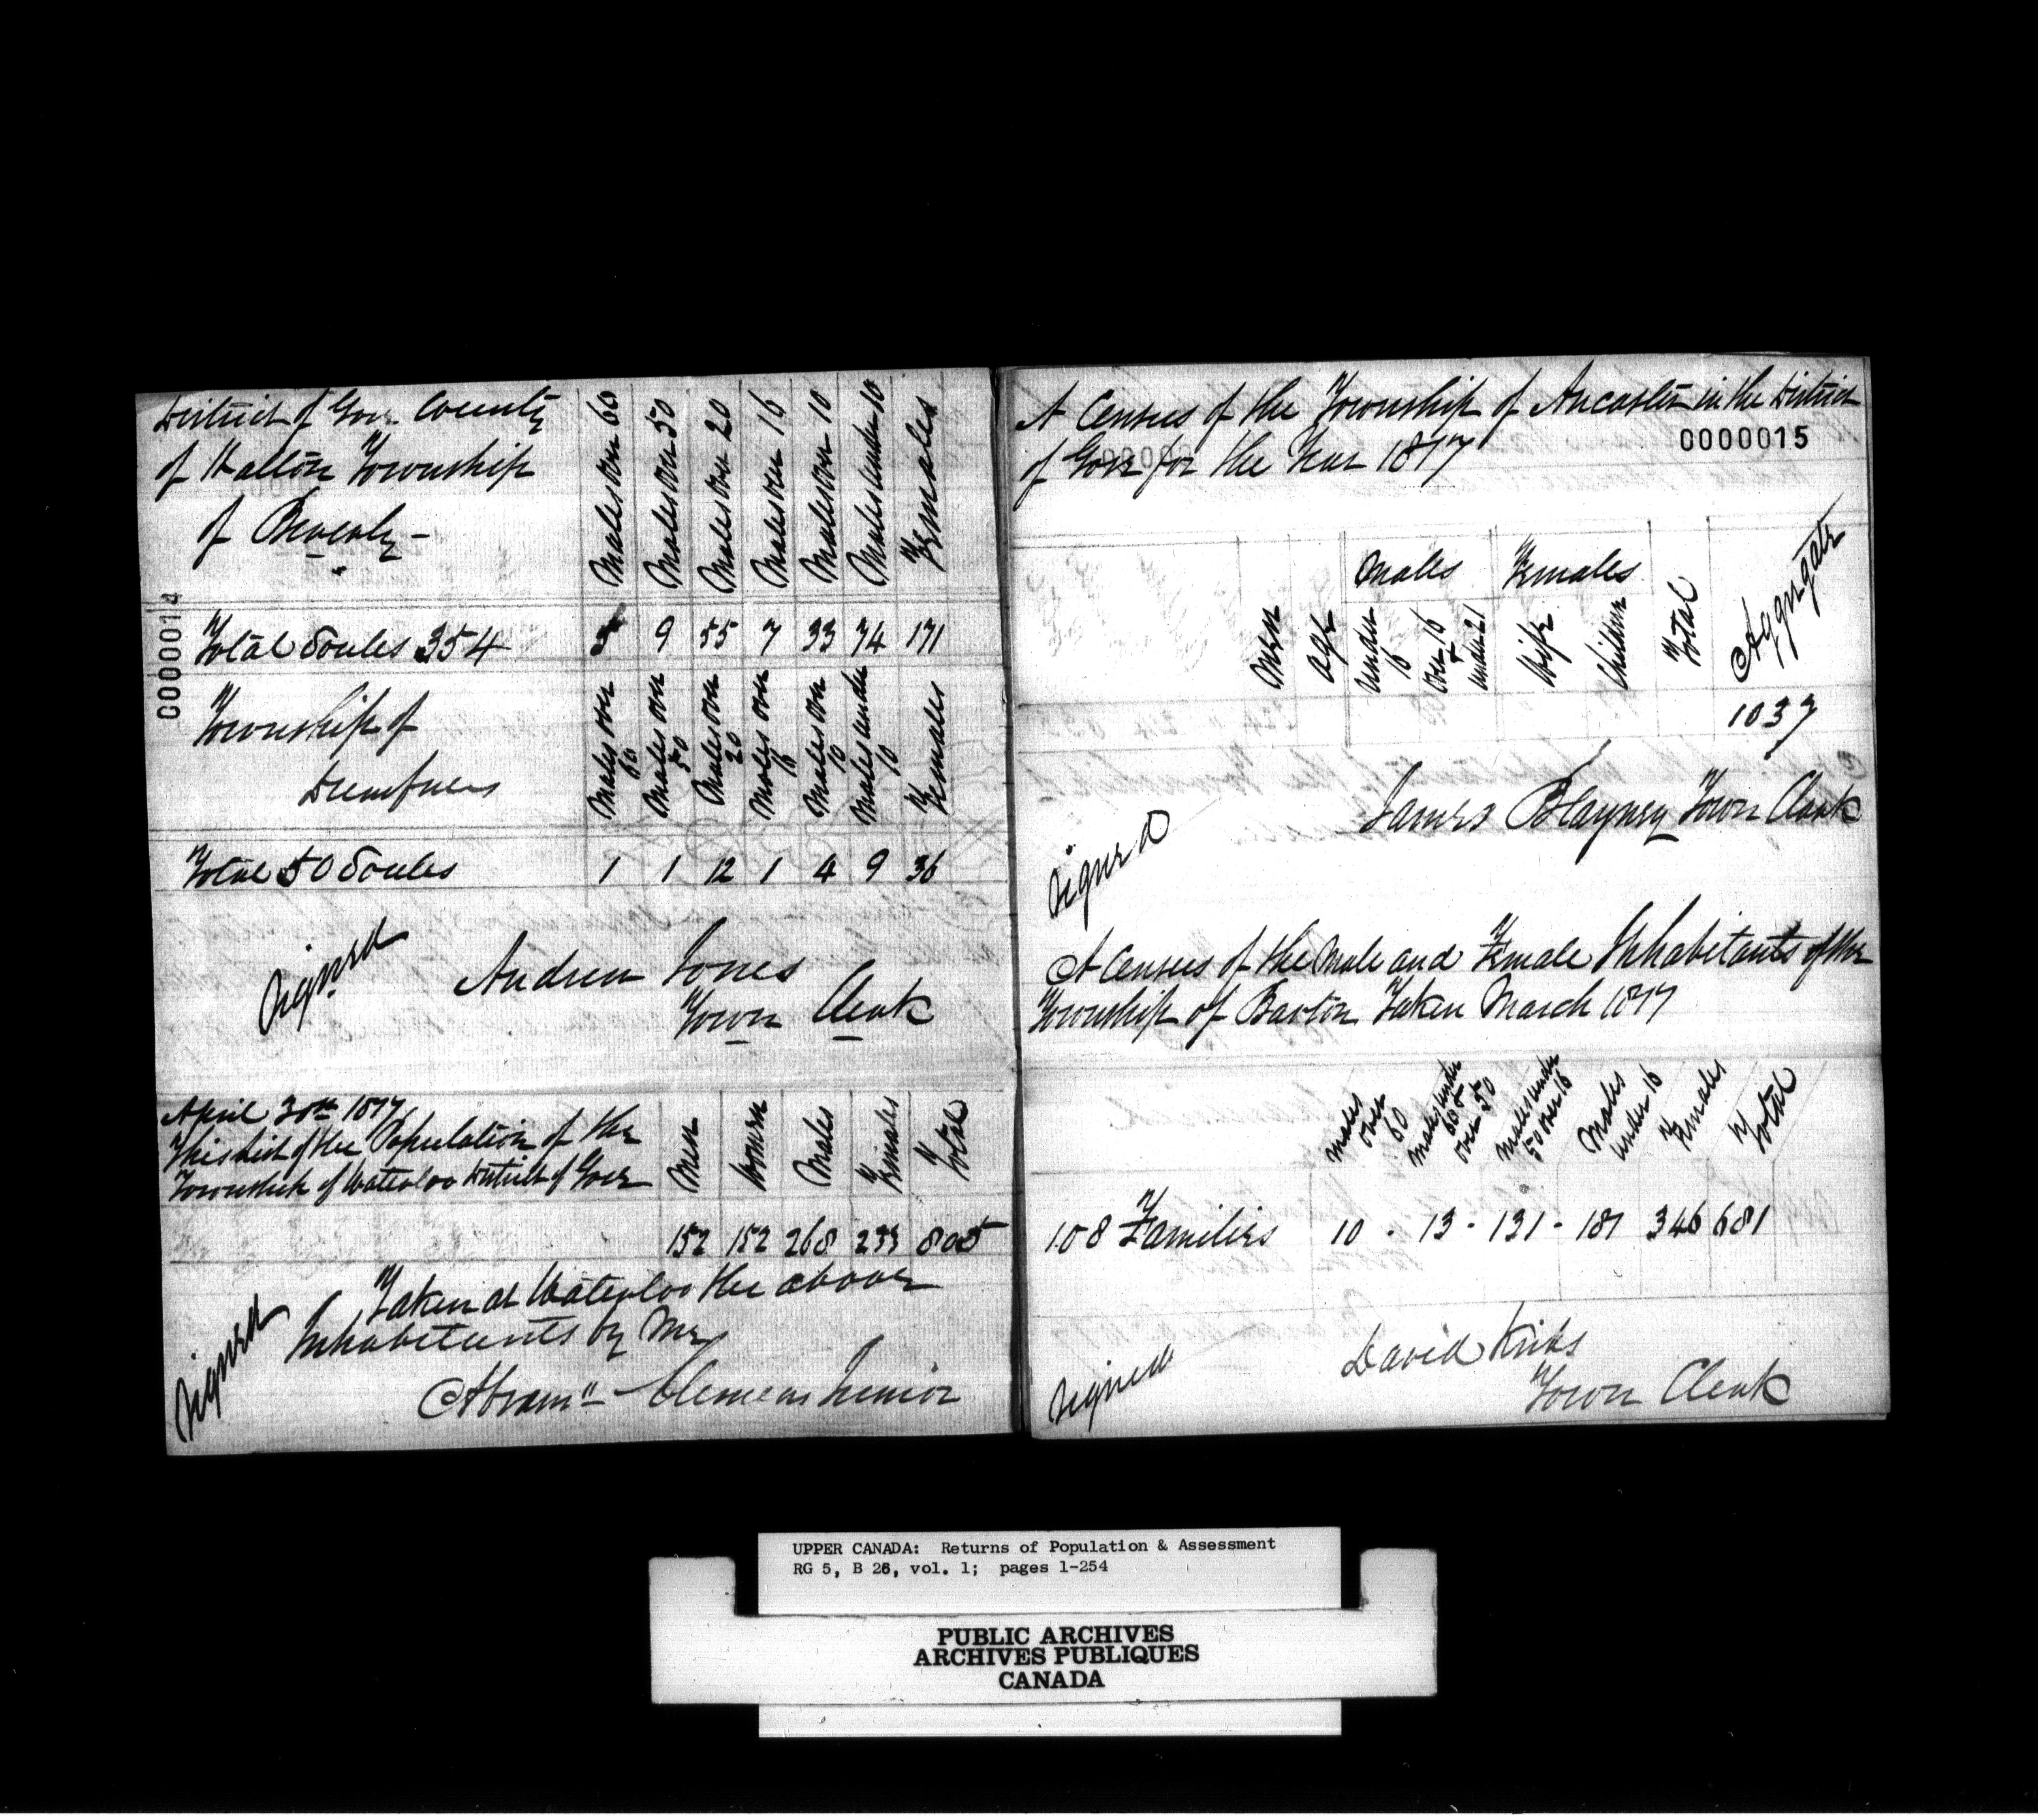 District of Gore County
of Halton Township
of Beverly -
Males over 60
Males over 50
Males over 20
Males over 16
Males over 10
Males under 10
Females
0000014
Total Soules 354 5 9 55 7 33 74 171
Township of
Dumfries
Males over 60
Males over 50
Males over 20
Males over 16
Males over 10
Males under 10
Females
Total 50 Soules 1 1 12 1 4 9 36
Signed
Andrew Jones
Town Clerk
April 30th 1817
This list of the Population of the
Township of Waterloo District of Gore
Men
Women
Males
Females
Total
152 152 268 233 805
Taken at Waterloo the above
Inhabitants by Me
Signed
Abram" Clemens Junior
A Census of the Township of Ancaster in the District
0000015
of Gore for the Year 1817
Men
age
Males
under 16
over 16 & under 21
Females
Wife
Children
Total
Aggregate
1037
Signed
James Blayney Town Clerk
A Census of the Male and Female Inhabitants of the
Township of Barton Taken March 1817
Males over 60
Males under 60 & over 50
Males under 50 over 16
Males under 16
Females
Total
108 Families 10 - 13 - 131 - 181 346 681
Signed
David Kribs
Town Clerk
UPPER CANADA: Returns of Population & Assessment
RG 5, B 26, vol. 1; pages 1-254
PUBLIC ARCHIVES
ARCHIVES PUBLIQUES
CANADA